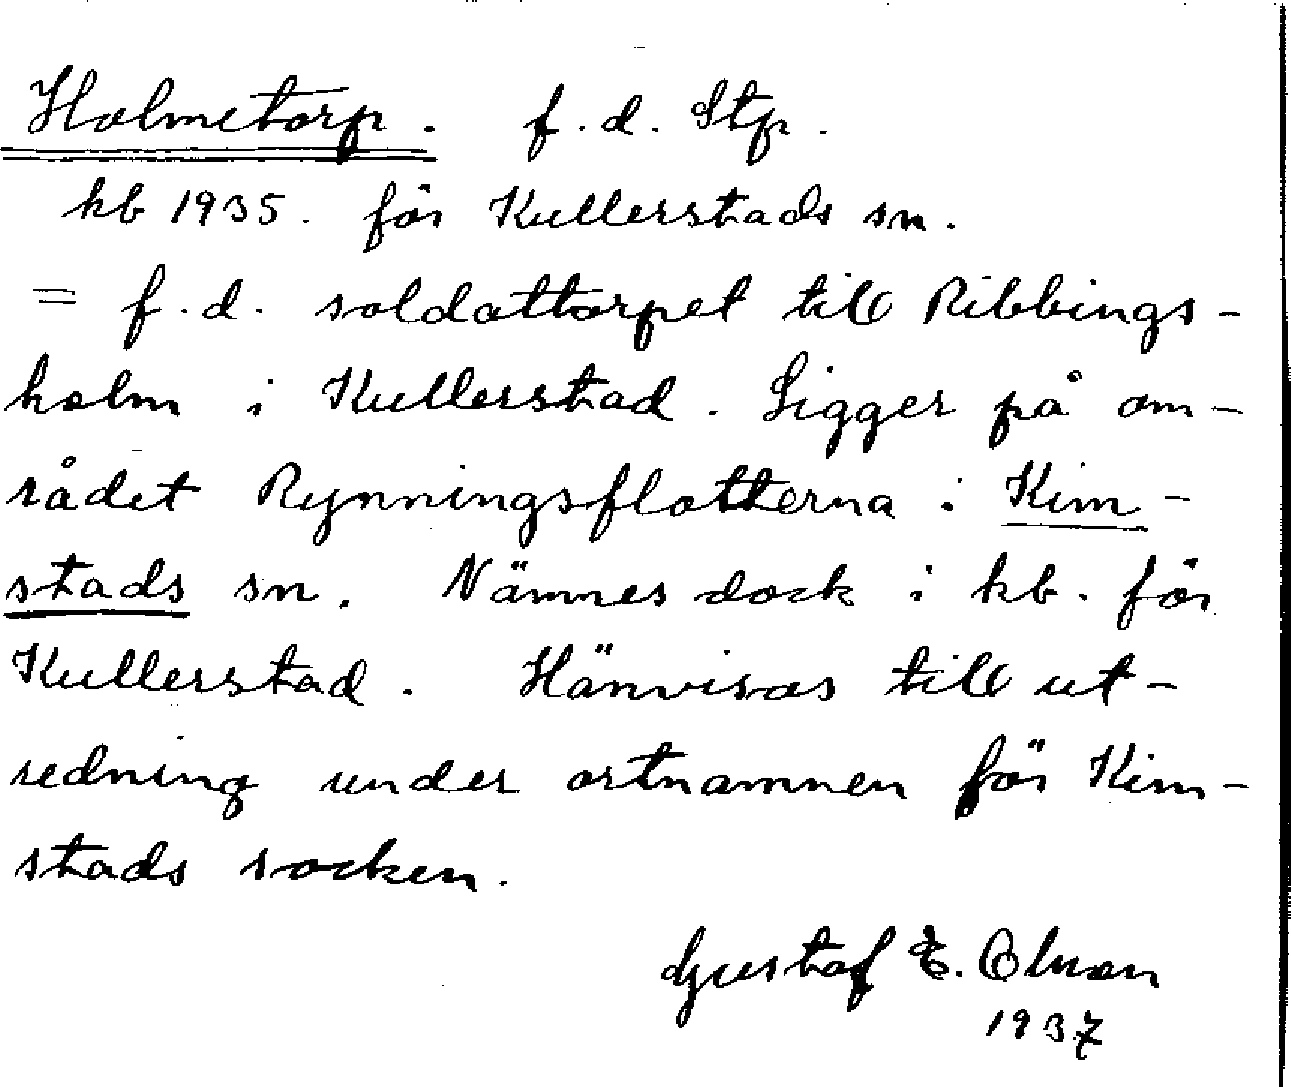 Holmetorp. f.d. Stp.
kb 1935. för Kullerstads sn.
= f.d. soldattorpet till Ribbings-
holm i Kullerstad. Ligger på om-
rådet Rynningsflotterna i Kim-
stads sn. Nämnes dock i kb. för
Kullerstad. Hänvisas till ut-
redning under ortnamnen för Kim-
stads socken.
Gustaf E. Olson
1937